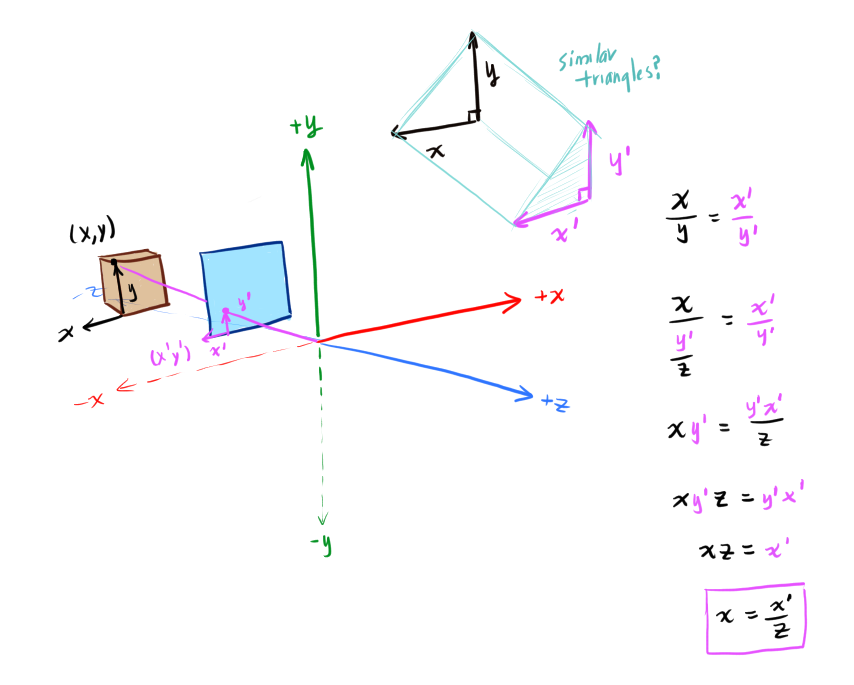 similar
triangles?
y
x
y'
x'
+y
(x,y)
-z
y
x
y'
(x'y')
x'
+x
-x
+z
-y
x/y = x'/y'
x/(y'/z) = x'/y'
xy' = y'x'/z
xy'z = y'x'
xz = x'
x = x'/z